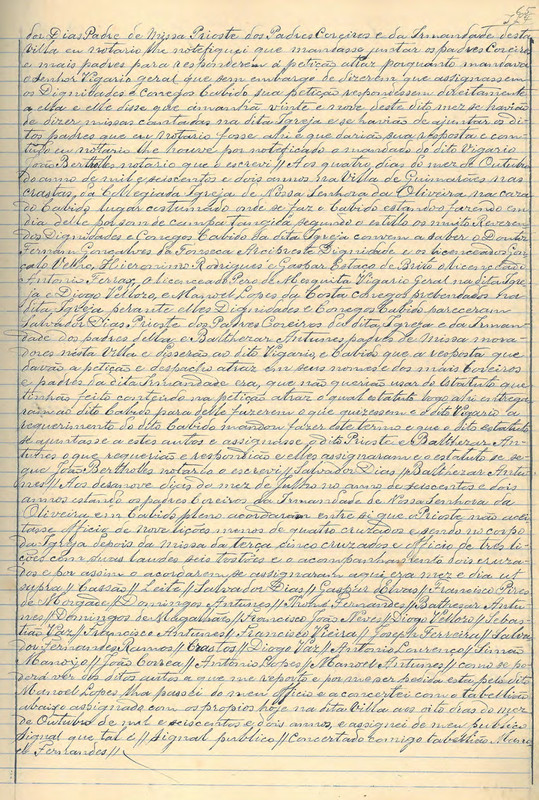 dor Dias Padre de Missa Prioste dos Padres Coreiros e da Irmandade desta
Villa eu notario lhe notefiquei que mandasse juntar os padres Coreiros
e mais padres para responderem á petição atraz porquanto mandava
o senhor Vigario geral que sem embargo de dizerem que assignassem
os Dignidades e Conegos Cabido sua petição respondessem direitamente
a ella e elle disse que ámanhã vinte e nove deste dito mez se havião
de dizer missas cantadas na dita Igreja e se havião de ajuntar os di-
tos padres que eu Notario fosse ahi e que darião sua resposta e com
tudo eu notario lhe houve por noteficado o mandado do dito Vigario
João Bertholles notario que o escrevi // Aos quatro dias do mez de Outubro
do anno de mil e seiscentos e dois annos na Villa de Guimarães nas
crastas da Collegiada Igreja de Nossa Senhora da Oliveira na caza
do Cabido lugar costumado onde se faz o Cabido estando fazendo em
dia delle por som de campa tangida segundo o estillo os muito Reveren-
dos Dignidades e Conegos Cabido da dita Igreja convem a saber o Doutor
Fernam Gonçalves da Fonseca Arcipreste Dignidade e os licenceados Gon-
çalo Velho, Hieronimo Rodrigues e Gaspar Estaço de Brito o licenceado
Antonio Ferraz, o licenceado Pero de Mesquita Vigario Geral na dita Igre-
ja e Diogo Velloso, e Manoel Lopes da Costa conegos prebendados na
dita Igreja perante elles Dignidades e Conegos Cabido pareceram
Salvador Dias Prioste dos Padres Coreiros da dita Igreja e da Irman-
dade dos padres della e Balthezar Antunes padres de Missa mora-
dores nesta Villa e disserão ao dito Vigario, e Cabido que a resposta que
davão a petição e despachos atraz em seus nomes e dos mais Coreiros
e padres da dita Irmandade era, que não querião usar do Estatuto que
tinhão feito conteudo na petição atraz o qual estatuto logo ahi entrega-
rão ao dito Cabido para delle fazerem o que quizessem e o dito Vigario a
requerimento do dito Cabido mandou fazer este termo e que o dito estatuto
se ajuntasse a estes autos e assignasse o dito Prioste e Balthezar An-
tunes o que requerião e respondião e elles assignaram e o estatuto se se-
gue João Bertholles notario o escrevi // Salvador Dias // Balthezar Antu-
nes // Aos desanove dias do mez de Julho no anno de seiscentos e dois
annos estando os padres Coreiros da Irmandade de Nossa Senhora da
Oliveira em Cabido pleno acordaram entre si que o Prioste não acei-
tasse officio de nove lições menos de quatro cruzados e sendo no corpo
da Igreja depois da missa da terça cinco cruzados e officio de tres li-
ções com suas laudes seis tostões e o acompanhamento dois cruza-
dos e por assim o acordarem se assignaram aqui era mez e dia ut
supra // // Leite // Salvador Dias // Gaspar // Francisco Pires
de Morgade // Domingos Antunes // Fernandes // Balthezar Antu-
nes // Domingos de Magalhães // Francisco João Neves // Diogo Velloso // Sebas-
tião Vaz // Francisco Antunes // Francisco Vieira // Joseph Ferreira // Salva-
dor Fernandes Ramos // Crastos // Diogo Vaz // Antonio Lourenço // Simão
// João Correa // Antonio Lopes // Manoel Antunes // como se po-
derá ver dos ditos autos a que me reporto e por me ser pedida esta pelo dito
Manoel Lopes lha passei do meu officio e a concertei com o tabellião
abaixo assignado com os proprios hoje na dita Villa aos oito dias do mez
de Outubro de mil e seiscentos e dois annos, e assignei de meu publico
signal que tal é // Signal publico // Concertado comigo tabellião Mano-
el Fernandes //